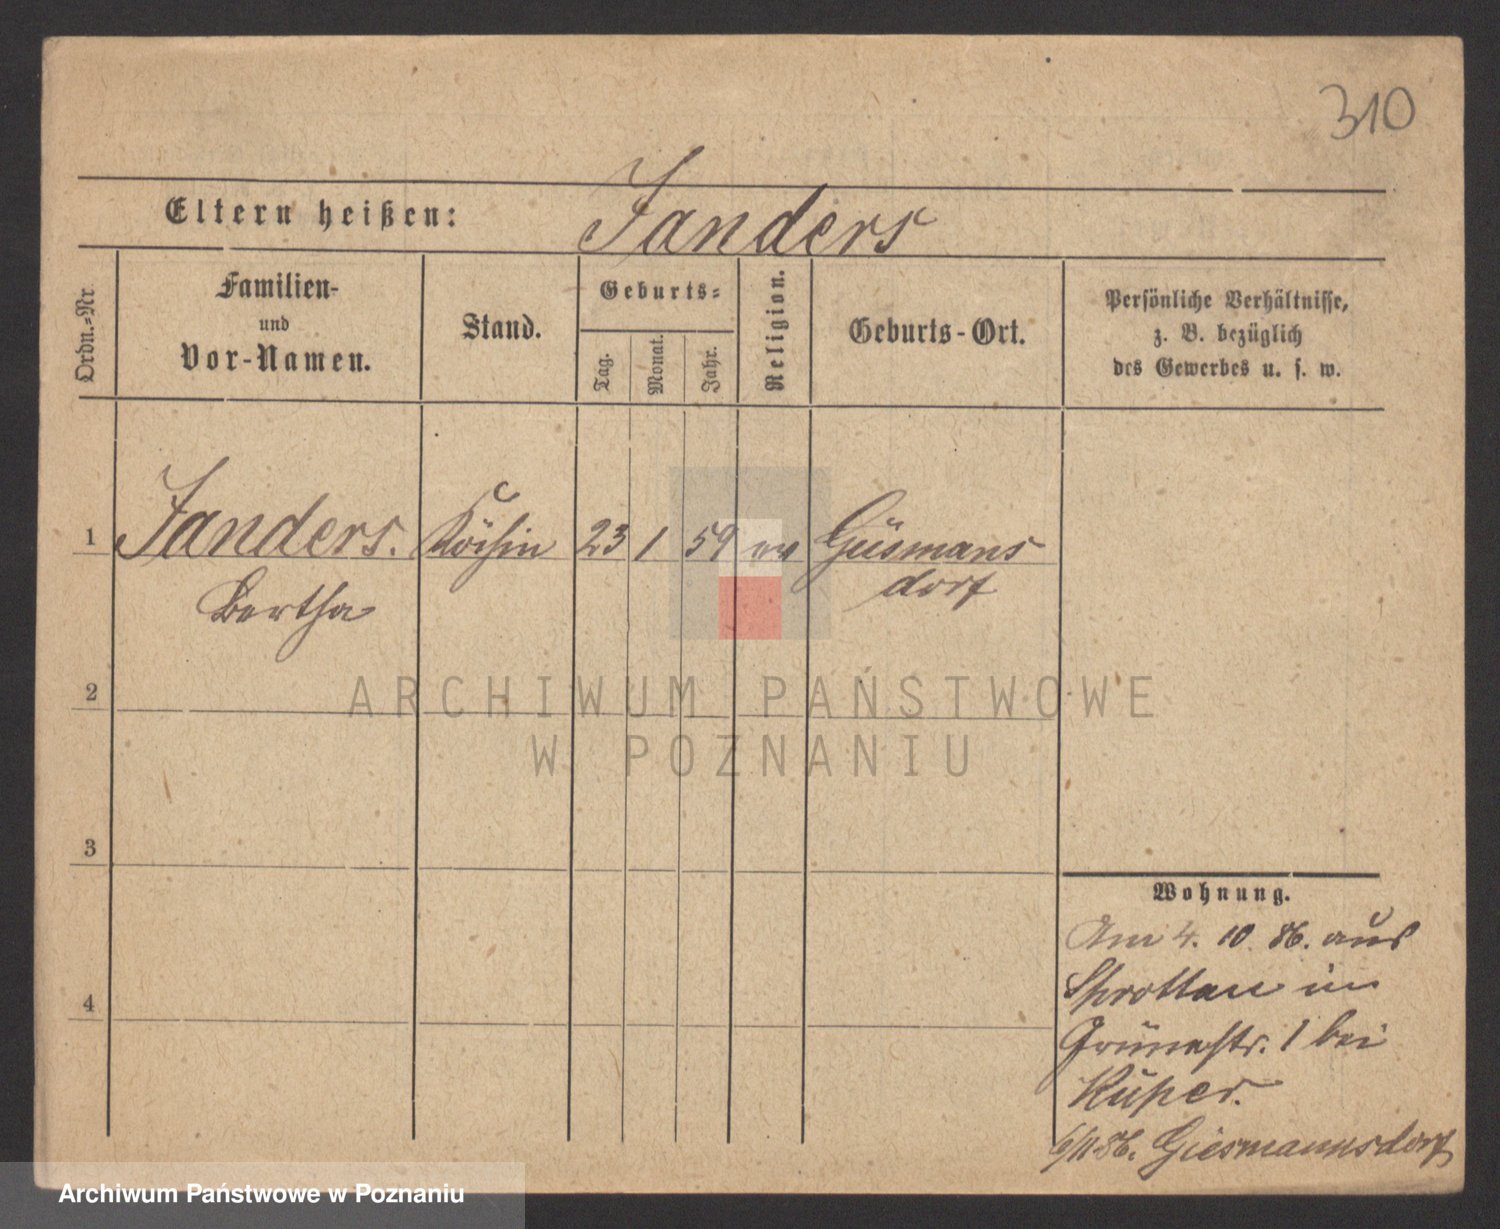 310
Eltern heißen: Janders
Ordn.-Nr.
Familien-
und
Vor-Namen.
Stand.
Geburts-
Tag.
Monat.
Jahr.
Religion.
Geburts-Ort.
Persönliche Verhältnisse,
z. B. bezüglich
des Gewerbes u. s. w.
1 Janders. Köchin 23 1 59 ev Giesmans
Bertha dorf
2
ARCHIWUM PAŃSTWOWE
W POZNANIU
3
Wohnung.
Am 4. 10. 86. aus
Sprottau in
4
Grünestr. 1 bei
Küper.
6/11 86. Giesmannsdorf
Archiwum Państwowe w Poznaniu